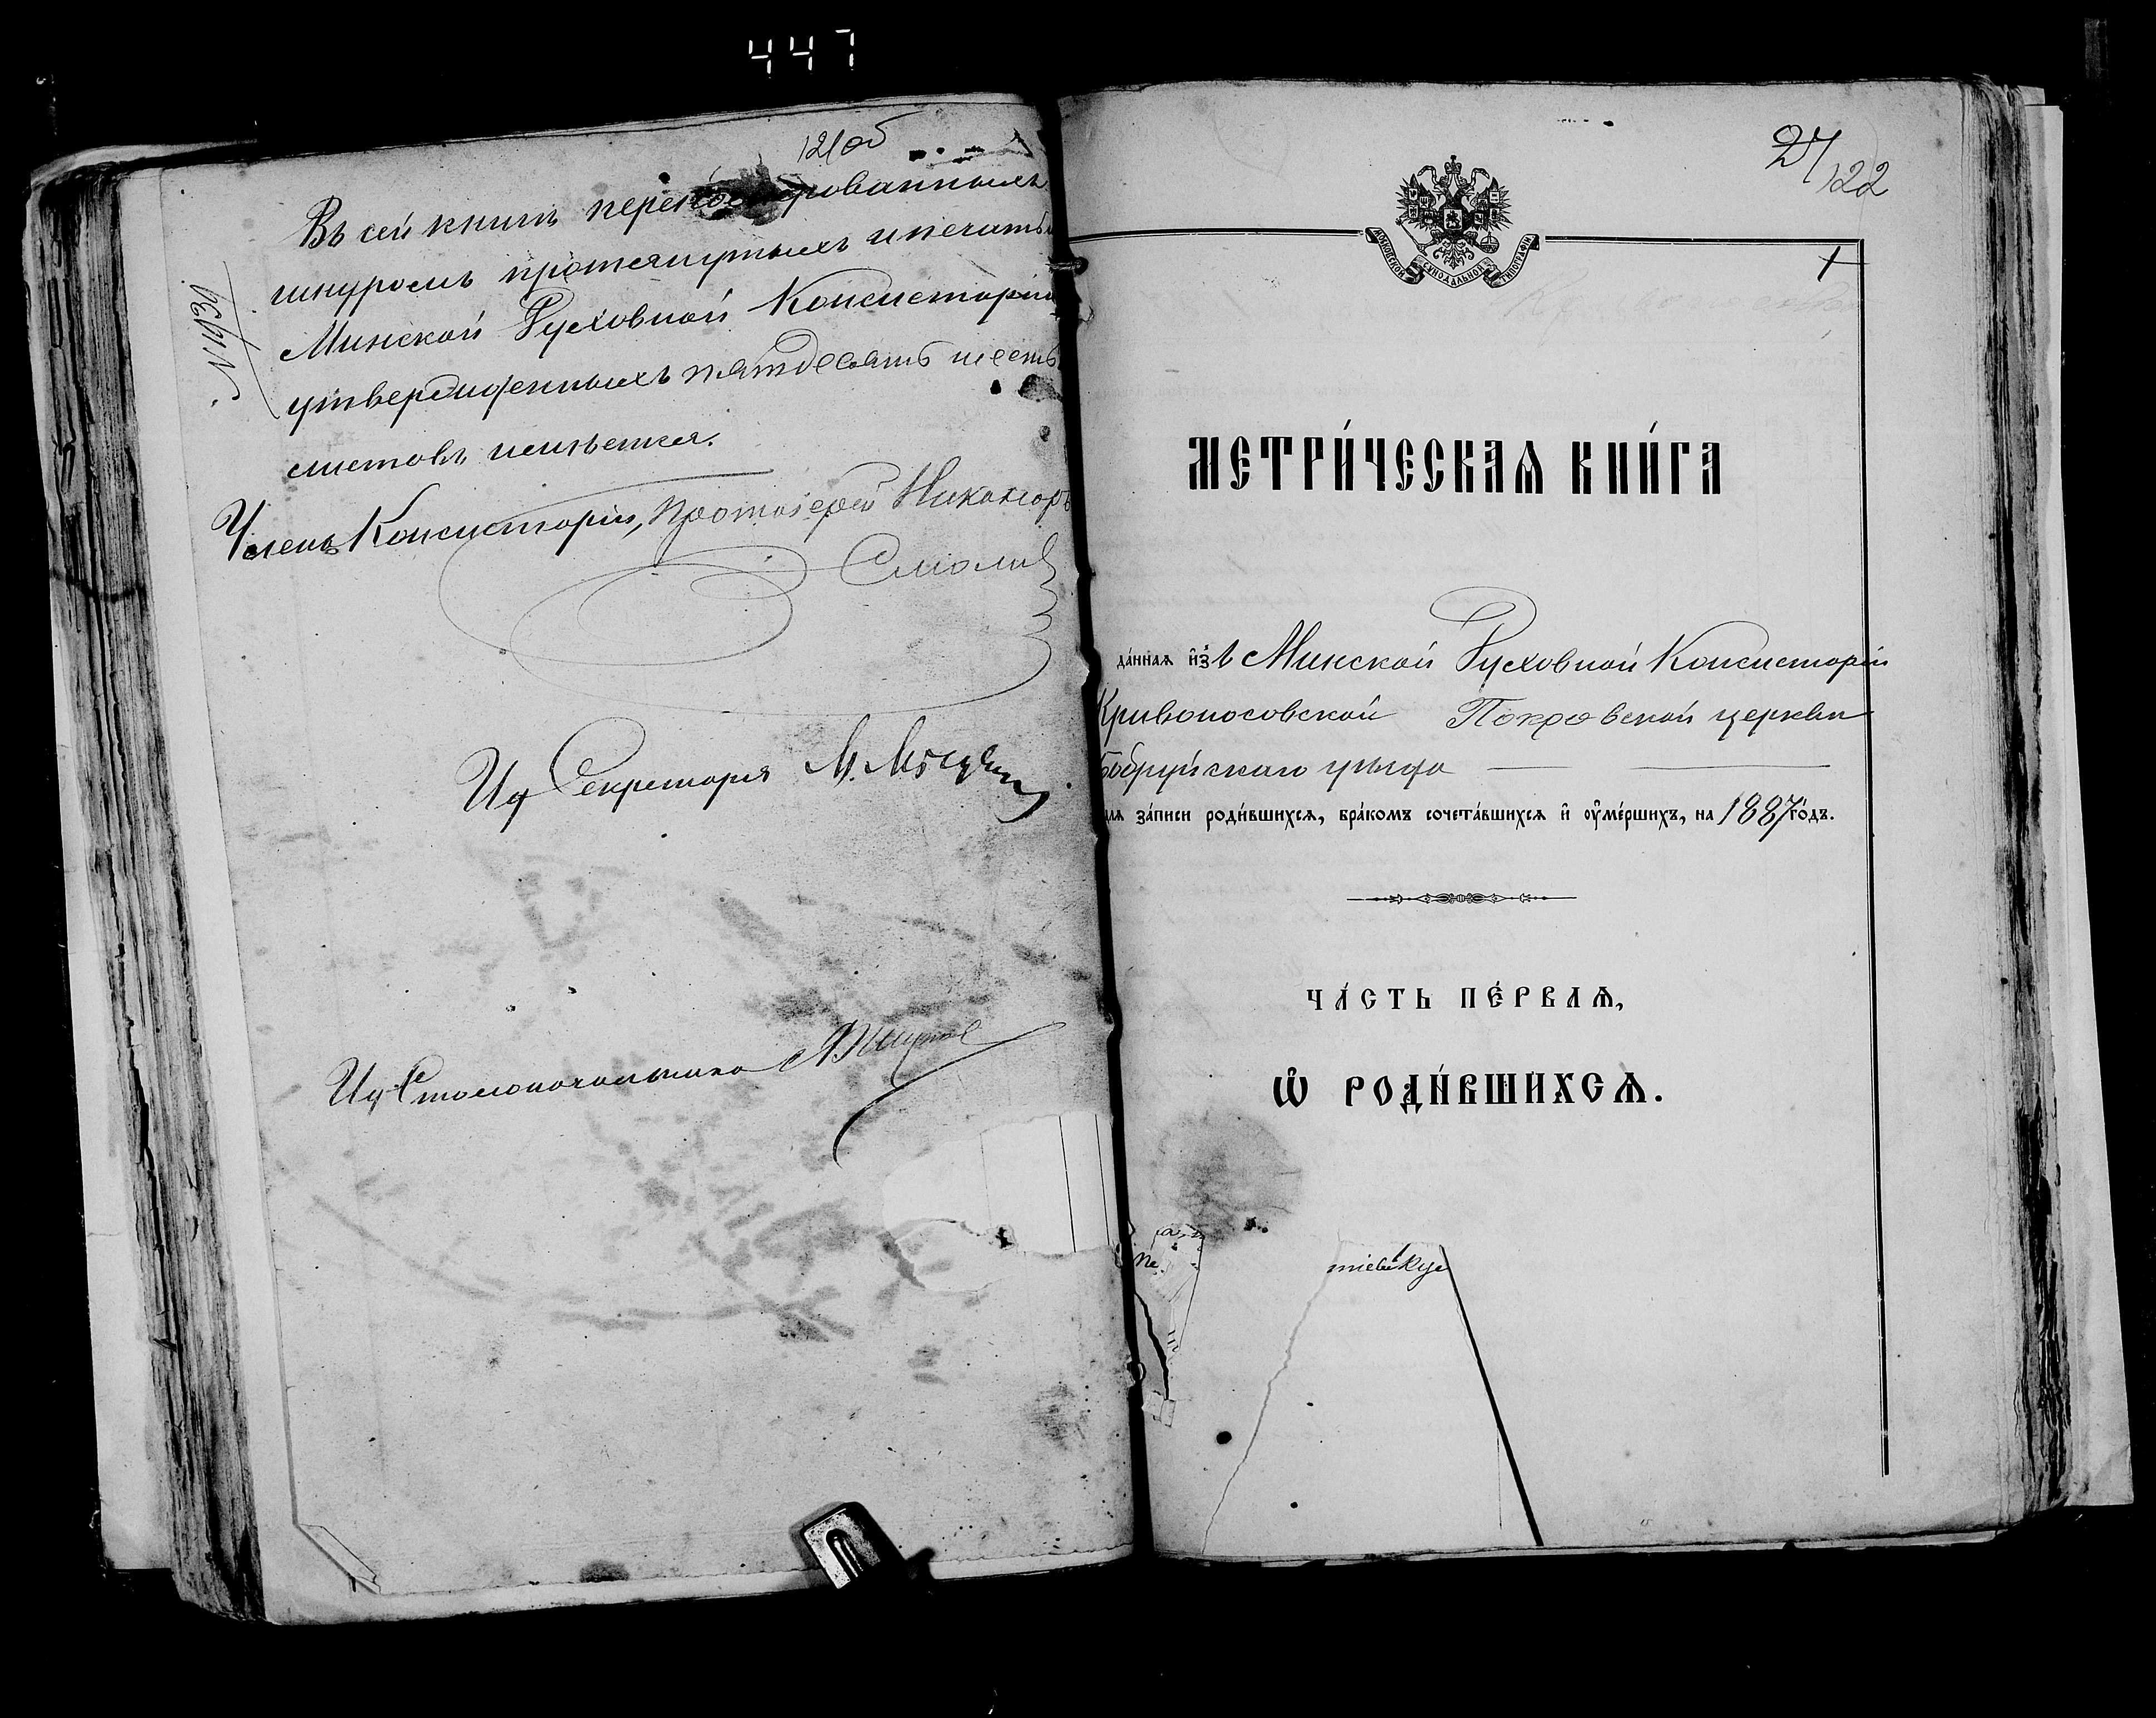 447
121об
Въ сей книгѣ перенумерованныхъ
шнуромъ протянутыхъ и печатью
Минской Духовной Консисторіи
утвержденныхъ пятьдесятъ шесть
листовъ имѣется.
Членъ Консисторіи, Протоіерей Никаноръ
Смоличъ
Ид Секретаря М.
Ид Столоначальника
27
122
1
МОСКОВСКОЙ СѴНОДАЛЬНОЙ ТИПОГРАФІИ
МЕТРИ́ЧЕСКАѦ КНИ́ГА
да́ннаѧ и҆зъ Минской Духовной Консисторіи
Кривоносовской Покровской церкви
Бобруйскаго уѣзда
для за́писи роди́вшихсѧ, бра́комъ сочета́вшихсѧ и҆ ѹ҆ме́ршихъ, на 1887 го́дъ.
ЧА́СТЬ ПЕ́РВАѦ,
Ѡ҆ РОДИ́ВШИХСѦ.